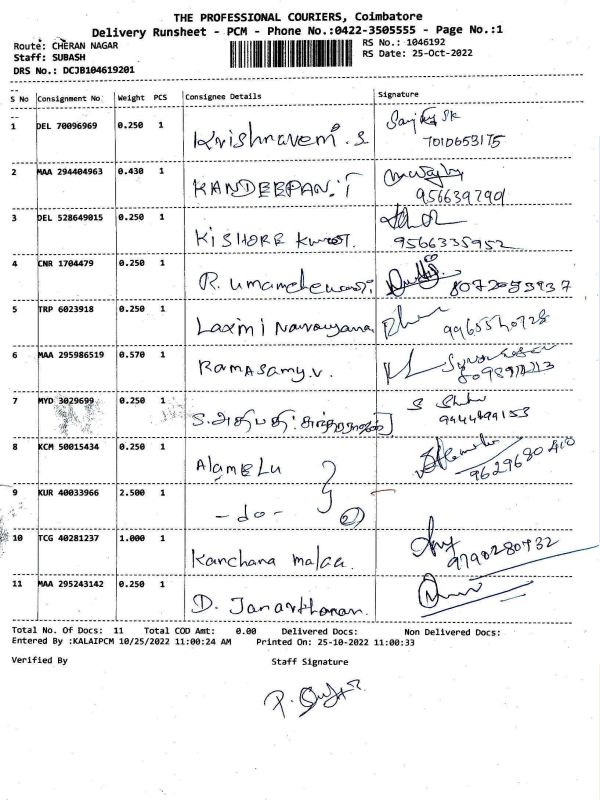 THE PROFESSIONAL COURIERS, Coimbatore
Delivery Runsheet - PCM - Phone No.:0422-3505555 - Page No.:1
Route: CHERAN NAGAR RS No.: 1046192
Staff: SUBASH RS Date: 25-Oct-2022
DRS No.: DCJB104619201
S No Consignment No Weight PCS Consignee Details Signature
1 DEL 70096969 0.250 1 Krishnaveni.S
7010653175
2 MAA 294404963 0.430 1 KANDEEPAN.T
956639790
3 DEL 528649015 0.250 1 KISHORE Kumar.
9566335952
4 CNR 1704479 0.250 1 R. Umamaheswari.
5 TRP 6023918 0.250 1 Laxmi Narayana
6 MAA 295986519 0.570 1 Ramasamy.V.
7 MYD 3029699 0.250 1
9444899153
8 KCM 50015434 0.250 1 Alamelu
9629680410
9 KUR 40033966 2.500 1 -do- (2)
10 TCG 40281237 1.000 1 Kanchana mala.
9790280732
11 MAA 295243142 0.250 1 D. Janarthanan.
Total No. Of Docs: 11 Total COD Amt: 0.00 Delivered Docs: Non Delivered Docs:
Entered By :KALAIPCM 10/25/2022 11:00:24 AM Printed On: 25-10-2022 11:00:33
Verified By Staff Signature